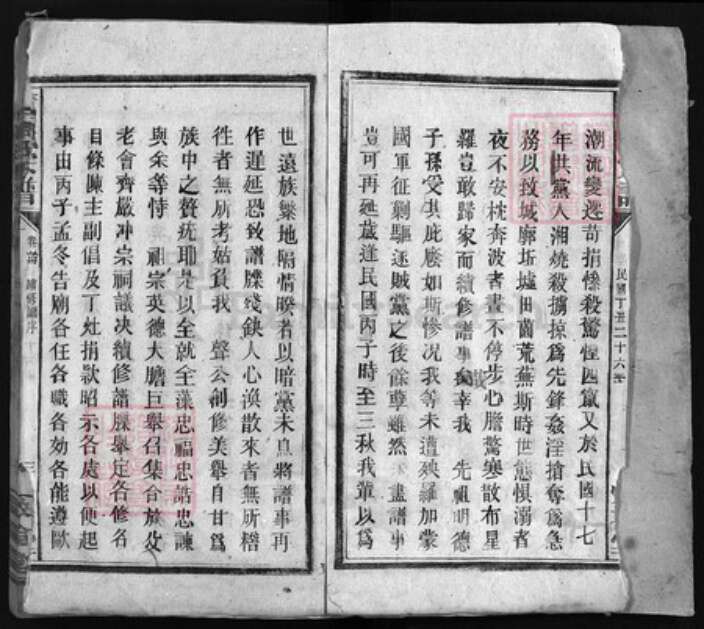 民國丁丑二十六年
潮流變遷苛捐慘殺驚惶四竄又於民國十七
年共黨入湘燒殺擄掠為先鋒姦淫搶奪為急
務以致城廓坵墟田園荒蕪斯時世態惧溺者
夜不安枕奔波者晝不停步心膽驚寒散布星
羅豈敢歸家而續修譜事矣幸我 先祖明德
子孫受其庇廕如斯慘況我等未遭殃羅加蒙
國軍征剿驅逐賊黨之後餘孽雖然未盡譜事
豈可再延歲逢民國丙子時至三秋我輩以為
世遠族繁地隔情暌者以暗黨未息將譜事再
作遲延恐致譜牒殘缺人心渙散來者無所稽
徃者無所考姑負我 聲公創修美舉自甘為
族中之贅疣耶是以全就全漢忠福忠誥忠諫
與余等恃 祖宗英德大膽巨舉召集合族父
老會齊嚴冲宗祠議決續修譜牒舉定各修名
目條陳主副倡及丁灶捐款昭示各處以便起
事由丙子孟冬告廟各任各職各効各能遵歐
卷首
續修譜序